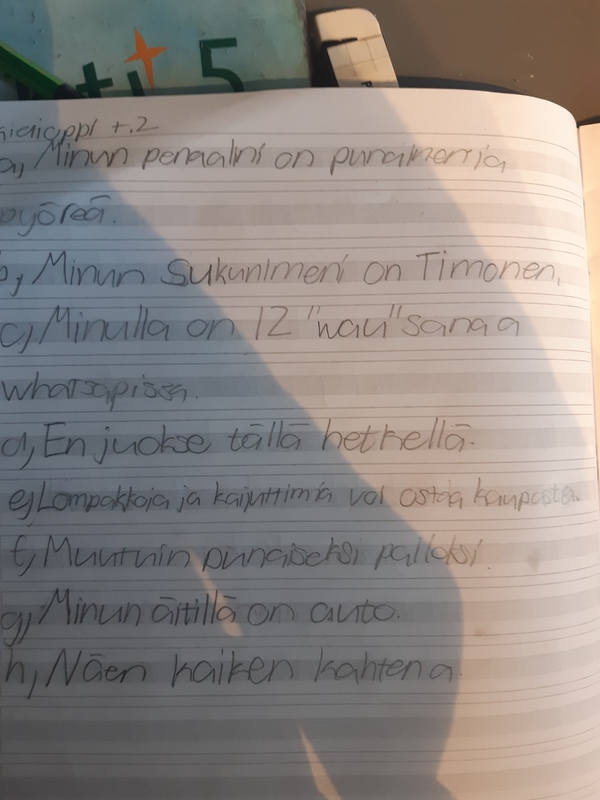 5
t.2
a, Minun penaalini on punainen ja
pyöreä.
b, Minun sukunimeni on Timonen.
c, Minulla on 12 "wau" sanaa
whatsapissa.
d, En juokse tällä hetkellä.
e, Lompakkoja ja kaijuttimia voi ostaa kaupasta.
f, Muutuin punaiseksi palloksi.
g, Minun äitillä on auto.
h, Näen kaiken kahtena.